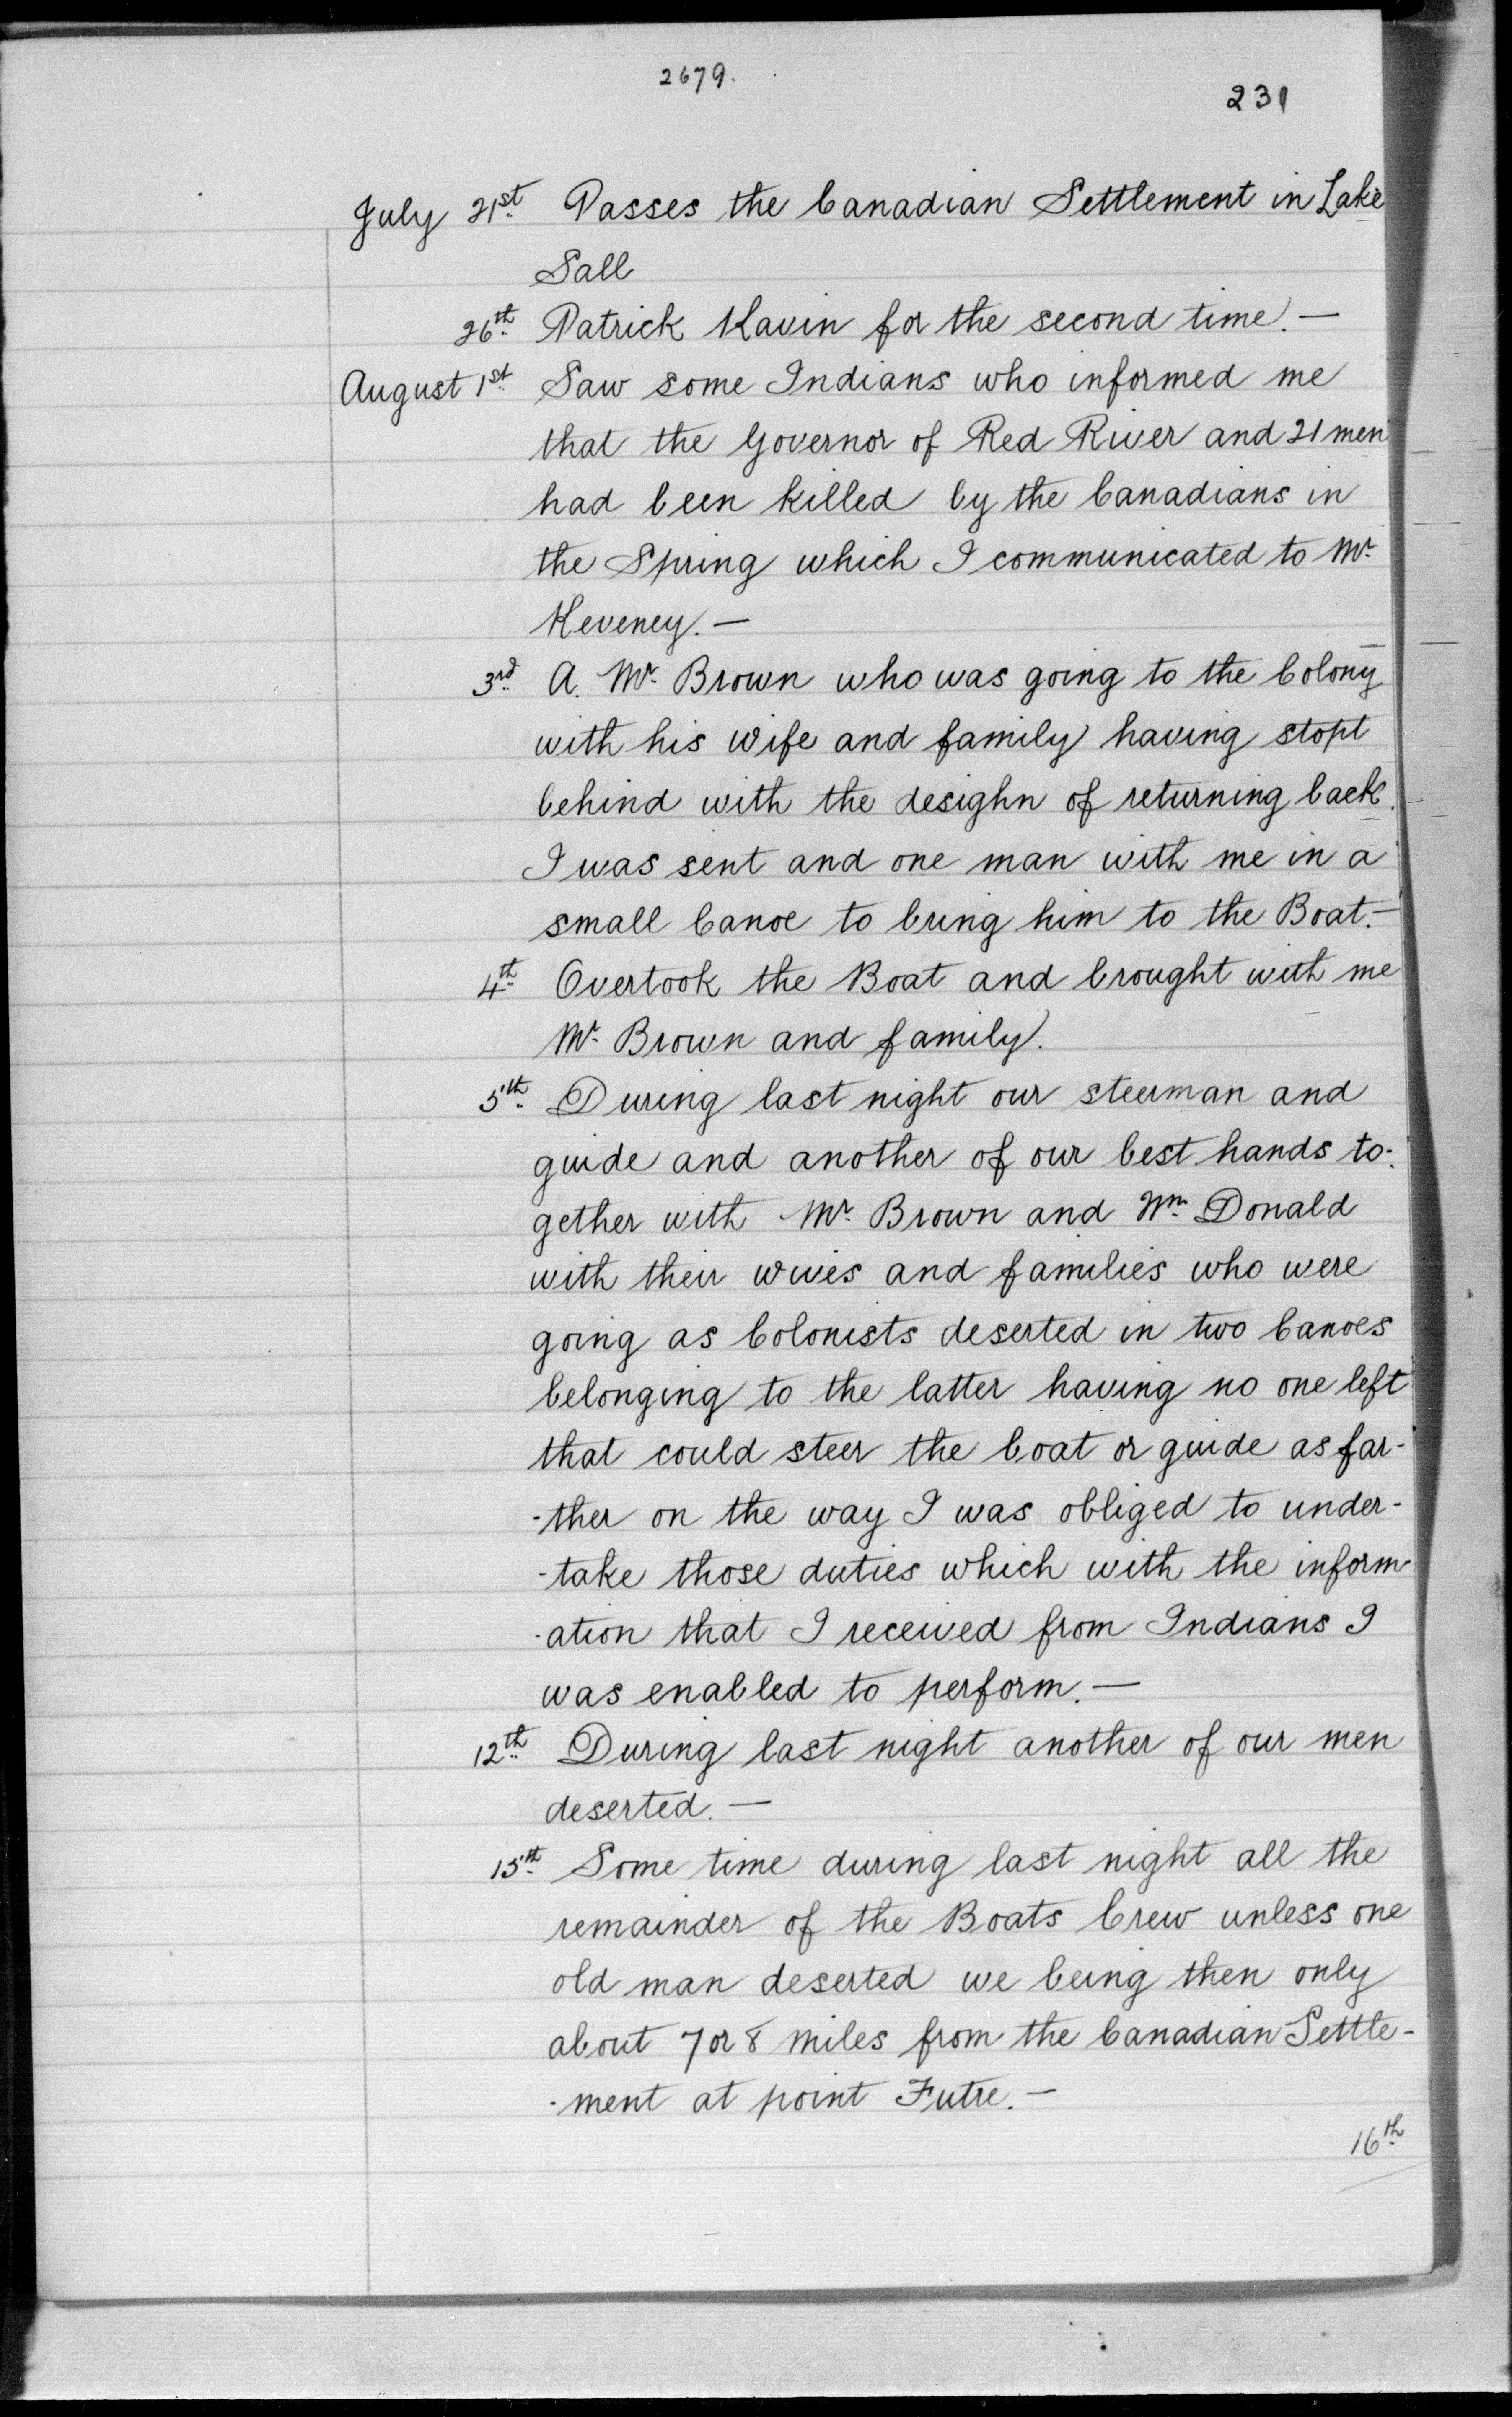 2679.
231
July 21st. Passes the Canadian Settlement in Lake
Sall
26th. Patrick Kavin for the second time.—
August 1st. Saw some Indians who informed me
that the Governor of Red River and 21 men
had been killed by the Canadians in
the Spring which I communicated to Mr.
Keveney.—
3rd. A. Mr. Brown who was going to the Colony
with his wife and family having stopt
behind with the desighn of returning back.
I was sent and one man with me in a
small Canoe to bring him to the Boat.—
4th. Overtook the Boat and brought with me
Mr. Brown and family.
5th. During last night our steerman and
guide and another of our best hands to-
gether with Mr. Brown and Wm. Donald
with their wives and families who were
going as Colonists deserted in two Canoes
belonging to the latter having no one left
that could steer the boat or guide as far-
-ther on the way I was obliged to under-
-take those duties which with the inform-
-ation that I received from Indians I
was enabled to perform.—
12th. During last night another of our men
deserted.—
15th. Some time during last night all the
remainder of the Boats Crew unless one
old man deserted we being then only
about 7 or 8 miles from the Canadian Settle-
-ment at point Futre.—
16th.